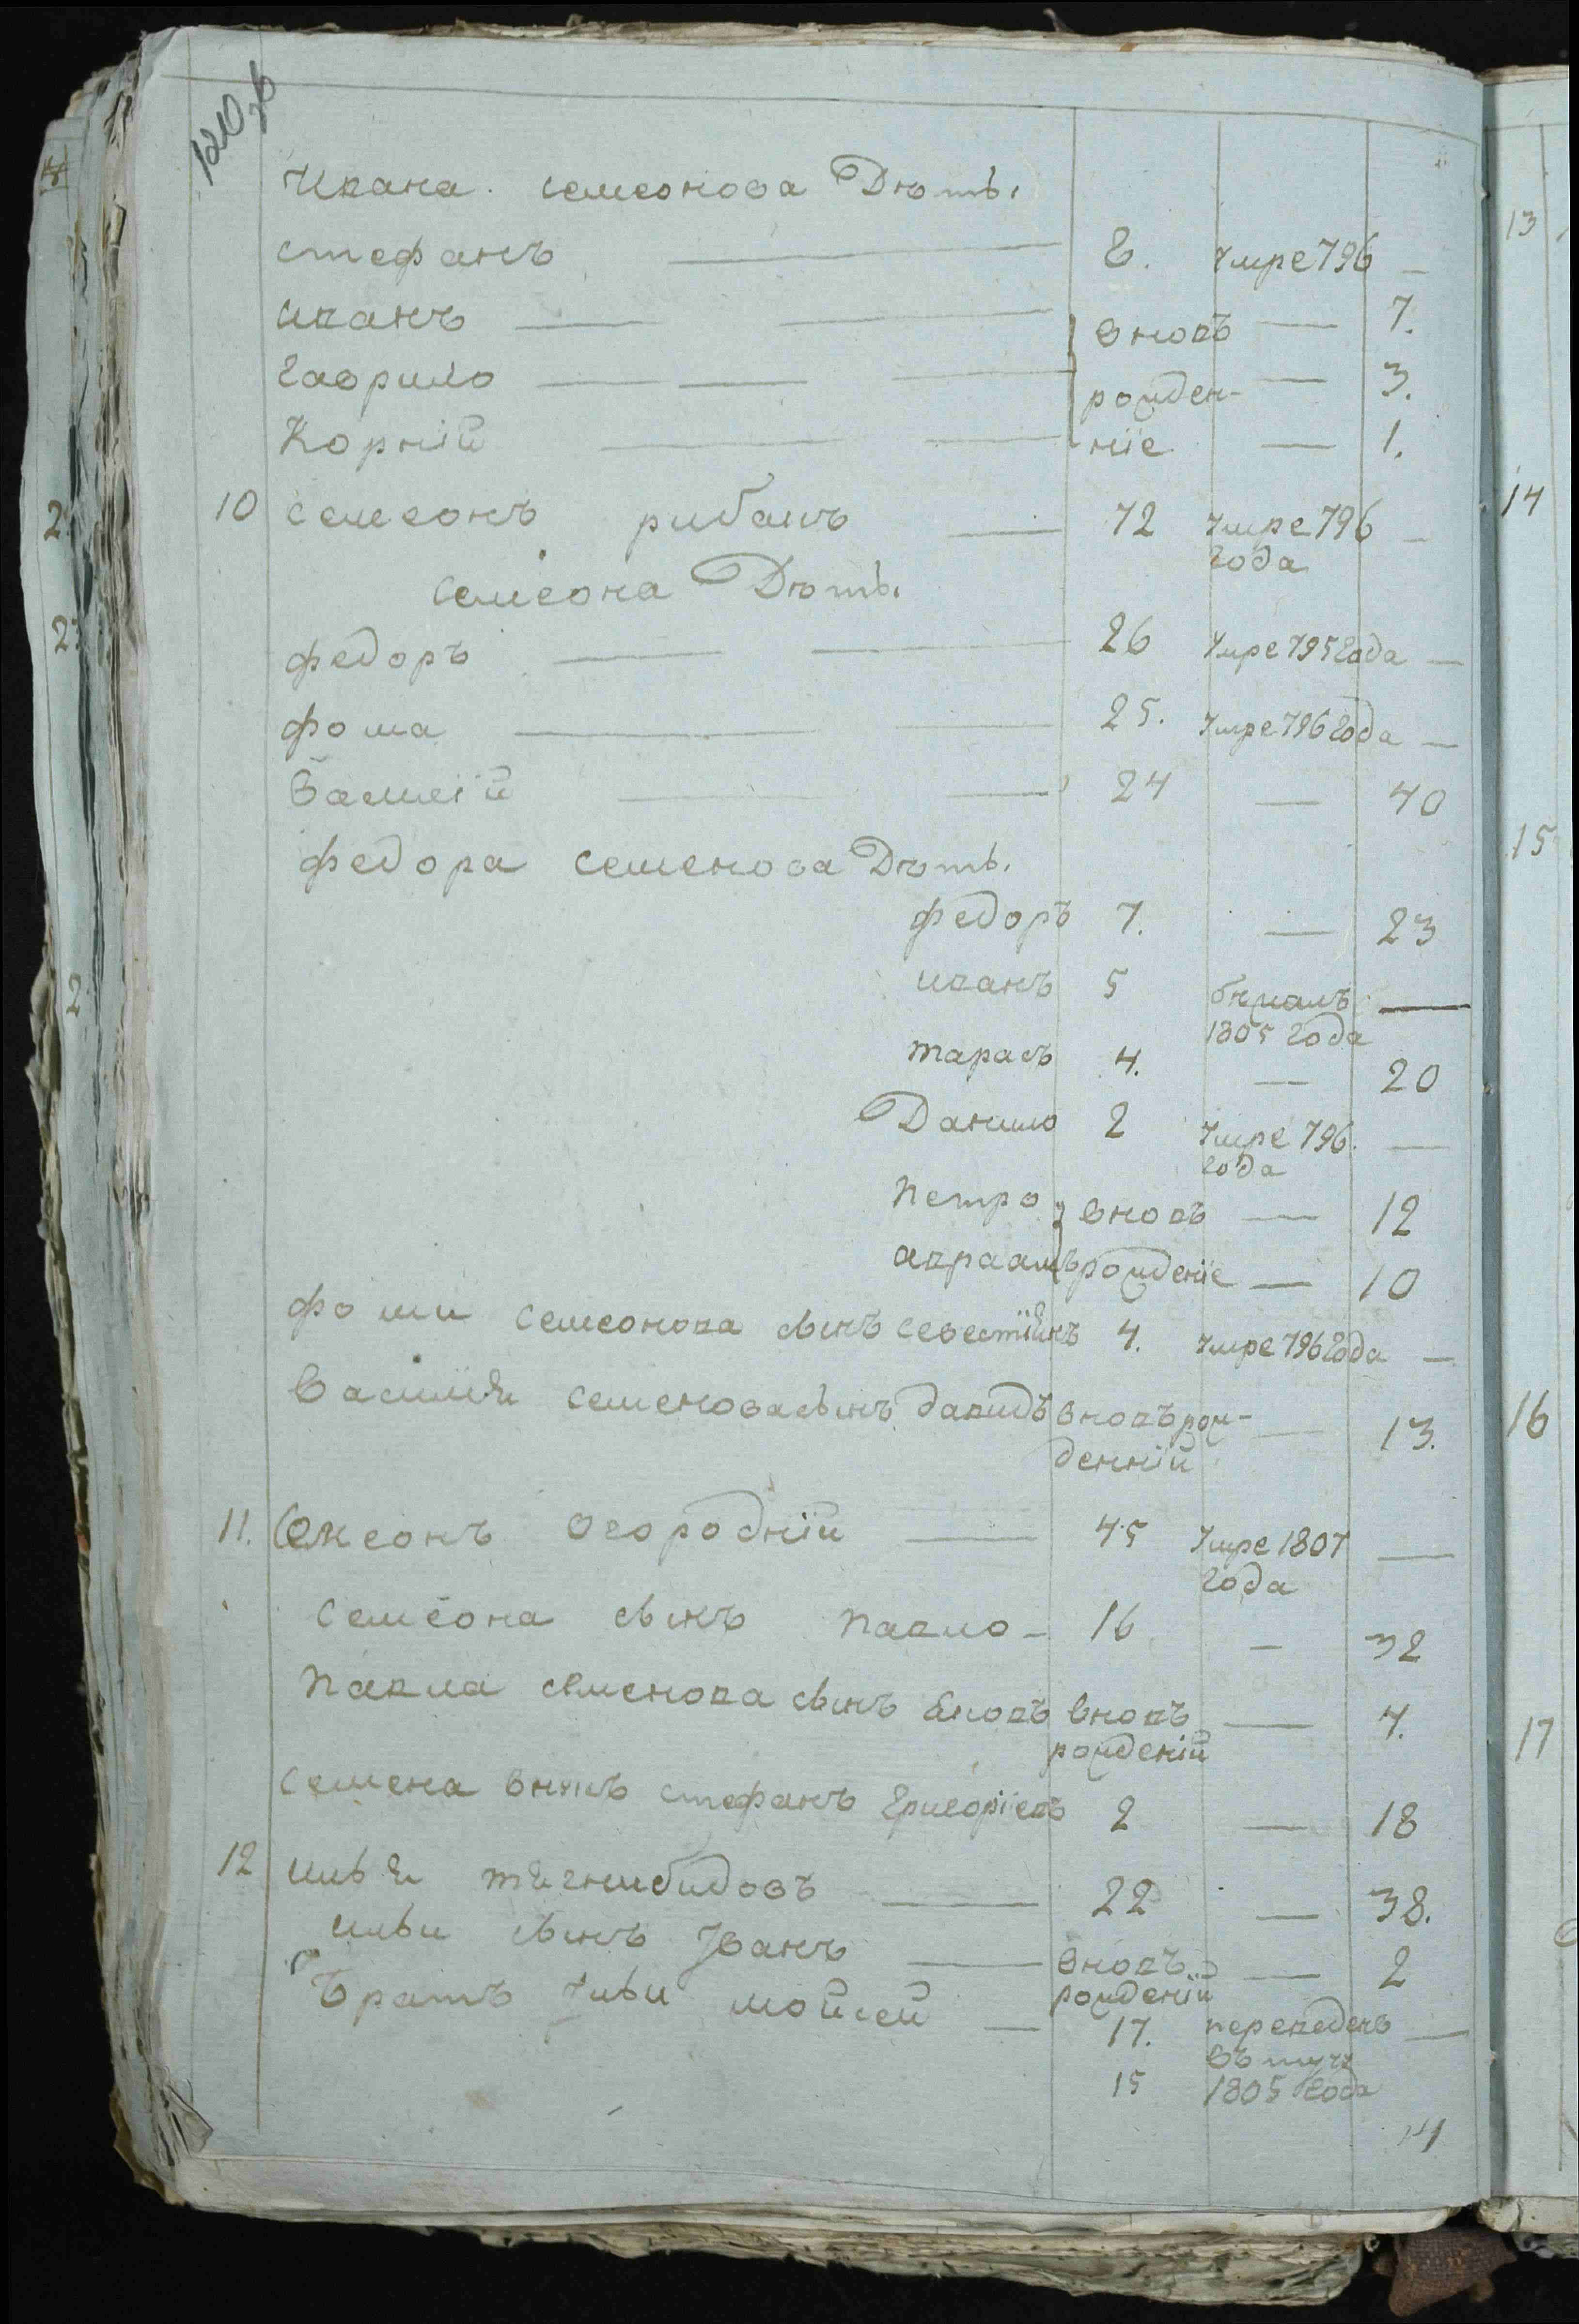 Ивана семеонова Дѣти
стефанъ 8. Умре 796
иванъ вновь 7.
гаврило рожден- 3.
Корнiй нiе 1.
10 семеонъ рибакъ 72 Умре 796
года
семеона Дѣти
федоръ 26 Умре 795 года
фома 25. Умре 796 года
васиiй 24 40
федора семенова Дѣти
федоръ 7. 23
иванъ 5 бежалъ
1805 года
тарасъ 4. 20
Данило 2 Умре 796.
года
петро вновь 12
авраамъ рожденiе 10
фоми семеонова сынъ севастiянъ 4. Умре 796 года
василия семенова сынъ давидъ вновь рож- 13.
деннiй
11. Семеонъ огороднiй 45 Умре 1807
года
семеона сынъ павло 16 32
павла семенова сынъ вновь 4.
рожденiй
семена внукъ стефанъ григорiевъ 2 18
12 илья тягнибидовъ 22 38.
ильи сынъ Iванъ вновь 2
рожденiй
братъ ильи мойсей 17. переведенъ
въ
15 1805 года
14
13
14
15
16
17